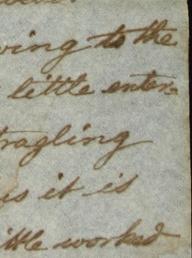 ving to the
little enter-
tragling
us it is
ittle worked